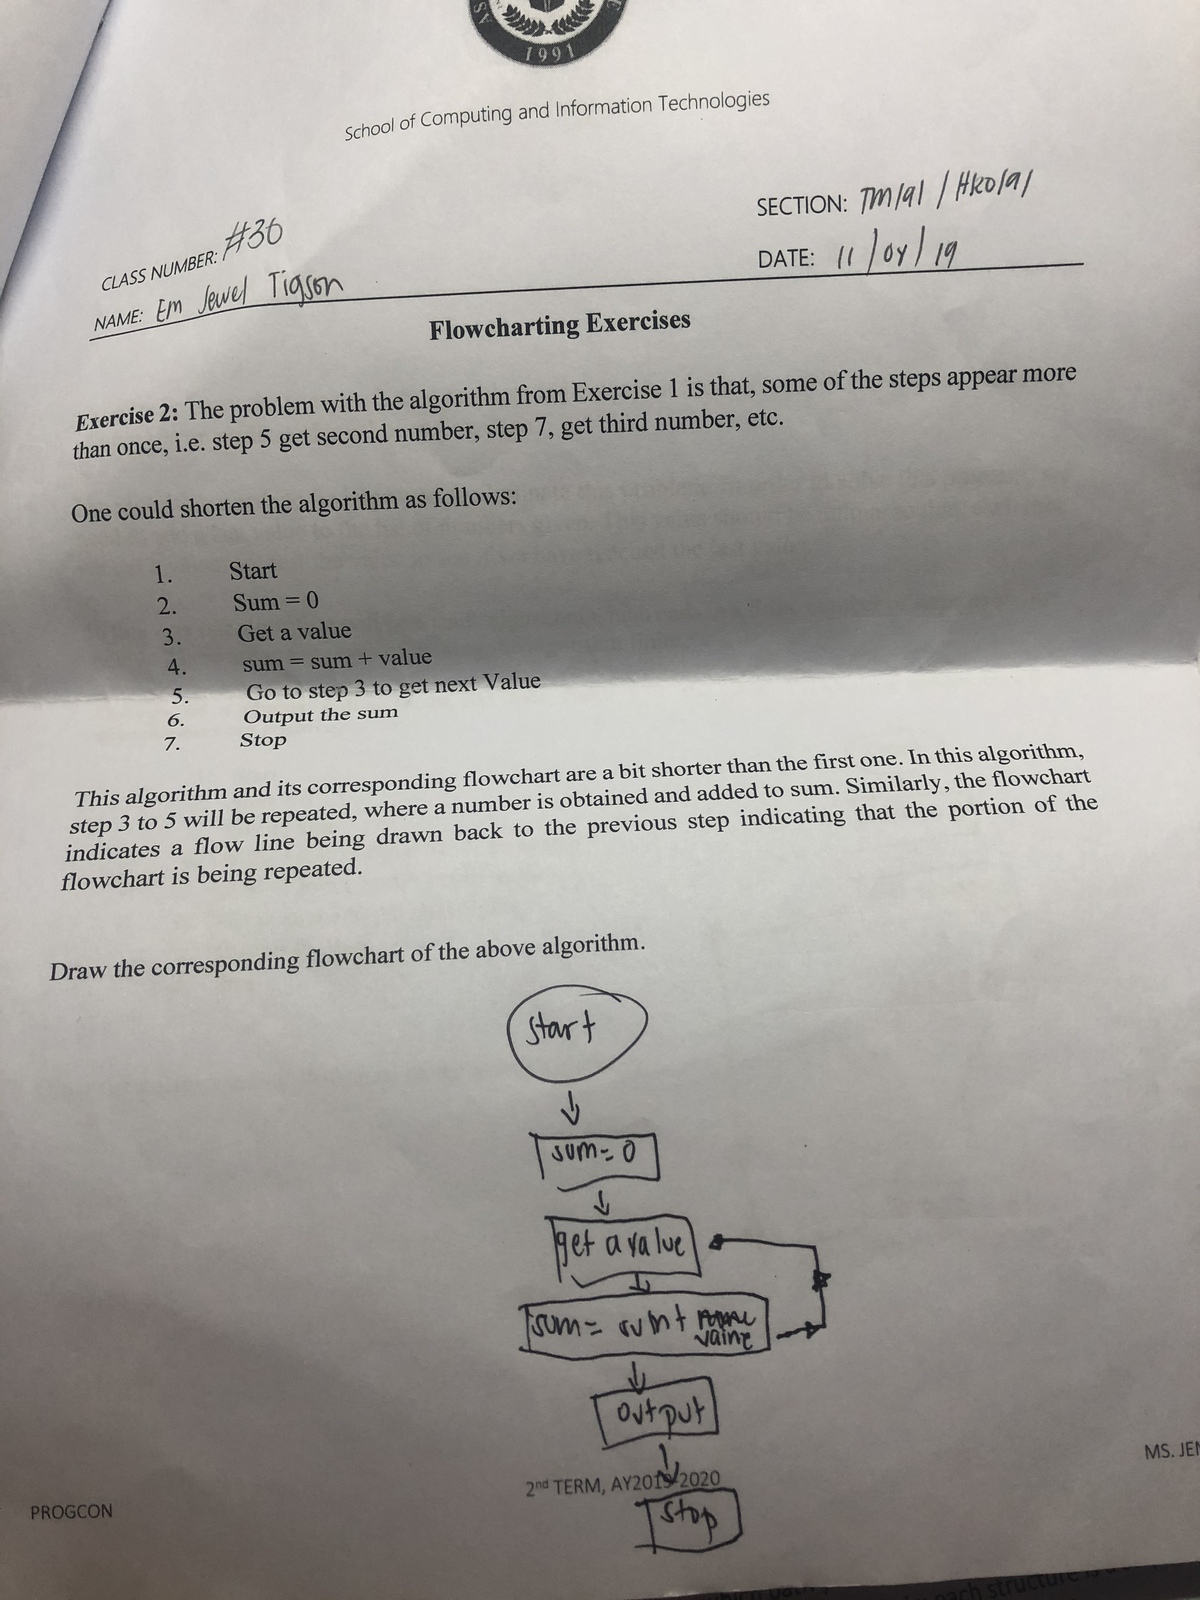 1991
School of Computing and Information Technologies
CLASS NUMBER: #36
SECTION:
NAME: Em Jewel Tigson
DATE: 11/04/19
Flowcharting Exercises
Exercise 2: The problem with the algorithm from Exercise 1 is that, some of the steps appear more
than once, i.e. step 5 get second number, step 7, get third number, etc.
One could shorten the algorithm as follows:
1. Start
2. Sum = 0
3. Get a value
4. sum = sum + value
5. Go to step 3 to get next Value
6. Output the sum
7. Stop
This algorithm and its corresponding flowchart are a bit shorter than the first one. In this algorithm,
step 3 to 5 will be repeated, where a number is obtained and added to sum. Similarly, the flowchart
indicates a flow line being drawn back to the previous step indicating that the portion of the
flowchart is being repeated.
Draw the corresponding flowchart of the above algorithm.
Start
sum = 0
get a value
sum = sum +
value
output
2nd TERM, AY2019-2020
MS. JEN
PROGCON
Stop